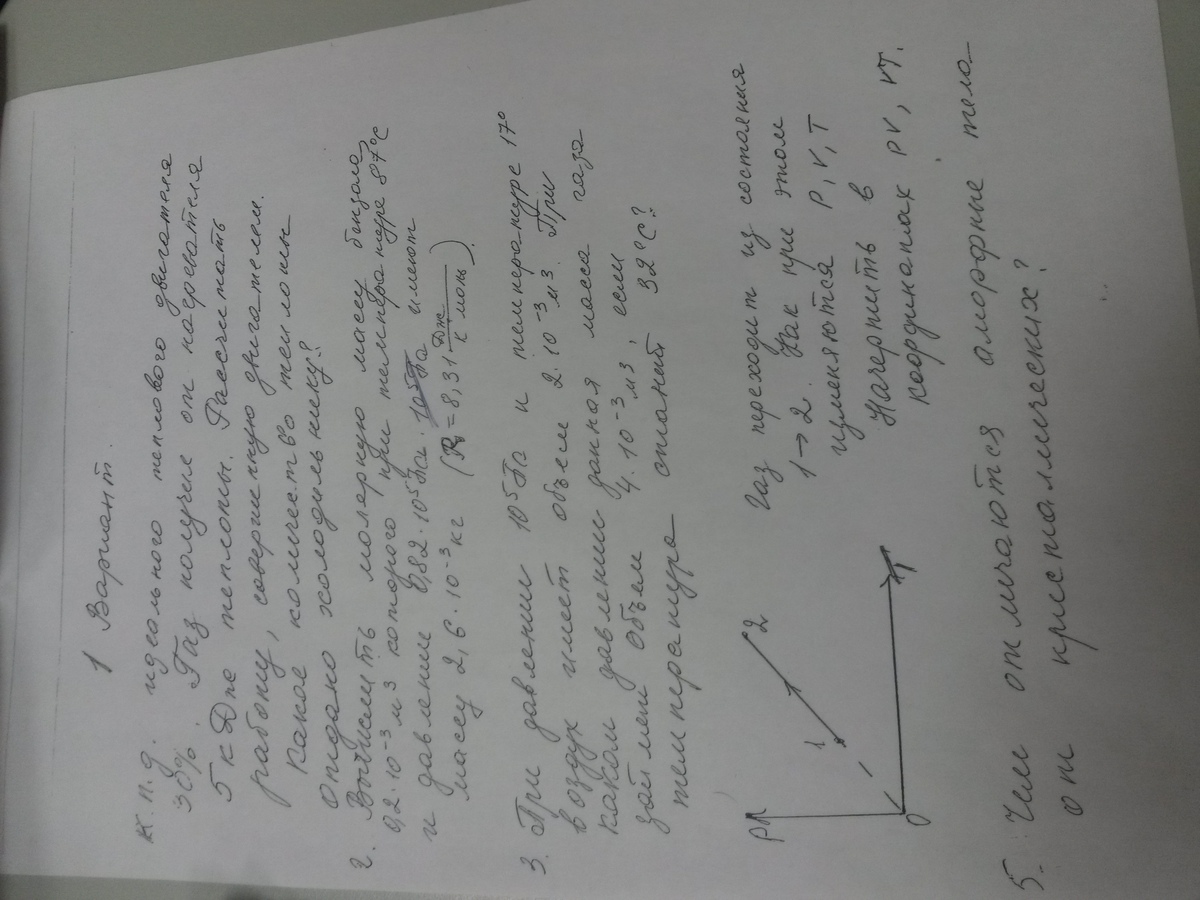 1 Вариант.
к.п.д. идеального теплового двигателя
30%. Газ получил от нагревателя
5 кДж теплоты. Рассчитать
работу, совершенную двигателем.
Какое количество теплоты
отдано холодильнику?
2. Вычислить молярную массу бензола,
0,2·10⁻³ м³ которого при температуре 87°С
и давлении 0,82·10⁵ Па имеют
массу 2,6·10⁻³ кг (R = 8,31 Дж/К моль).
3. При давлении 10⁵ Па и температуре 17°
воздух имеет объем 2·10⁻³ м³. При
каком давлении данная масса газа
займет объем 4·10⁻³ м³, если
температура станет 32°С?
P
1
2
0
T
Газ переходит из состояния
1→2. Как при этом
изменяются P, V, T
Начертить в
координатах PV, VT.
5. Чем отличаются аморфные тела
от кристаллических?